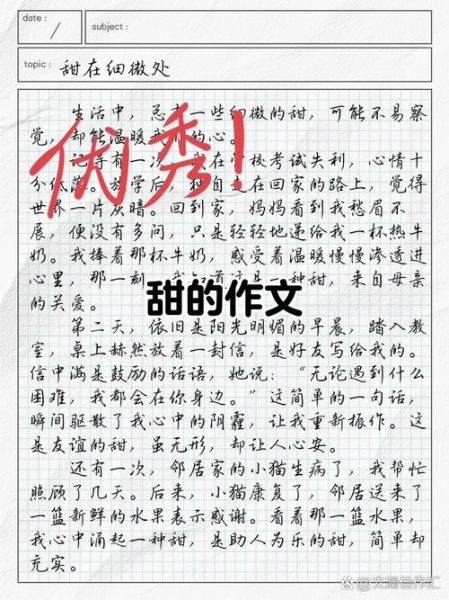 date :
subject :
topic : 甜在细微处
生活中，总有一些细微的甜，可能不易察
觉，却能温暖我们的心。
记得有一次，我在学校考试失利，心情十
分低落。放学后，独自走在回家的路上，觉得
世界一片灰暗。回到家，妈妈看到我愁眉不
展，便没有多问，只是轻轻地递给我一杯热牛
奶。我捧着那杯牛奶，感受着温暖慢慢渗透进
心里，那一刻，我知道这是一种甜，来自母亲
的关爱。
第二天，依旧是阳光明媚的早晨，踏入教
室，桌上赫然放着一封信，是好友写给我的。
信中满是鼓励的话语，她说：“无论遇到什么
困难，我都会在你身边。”这简单的一句话，
瞬间驱散了我心中的阴霾，让我重新振作。这
是友谊的甜，虽无形，却让人心安。
还有一次，邻居家的小猫生病了，我帮忙
照顾了几天。后来，小猫康复了，邻居送来了
一篮新鲜的水果表示感谢。看着那一篮水果，
我心中涌起一种甜，是助人为乐的甜，简单却
充实。
优秀！
甜的作文
@文澜佳作汇